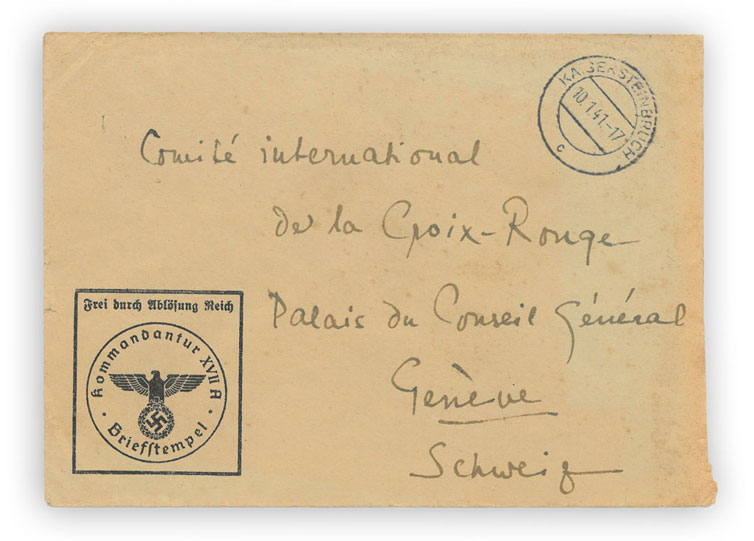 KAISERSTEINBRUCH
10.1.41.-17
c
Comité international
de la Croix-Rouge
Palais du Conseil Général
Genève
Schweiz
Frei durch Ablösung Reich
Kommandantur XVII A
Briefstempel